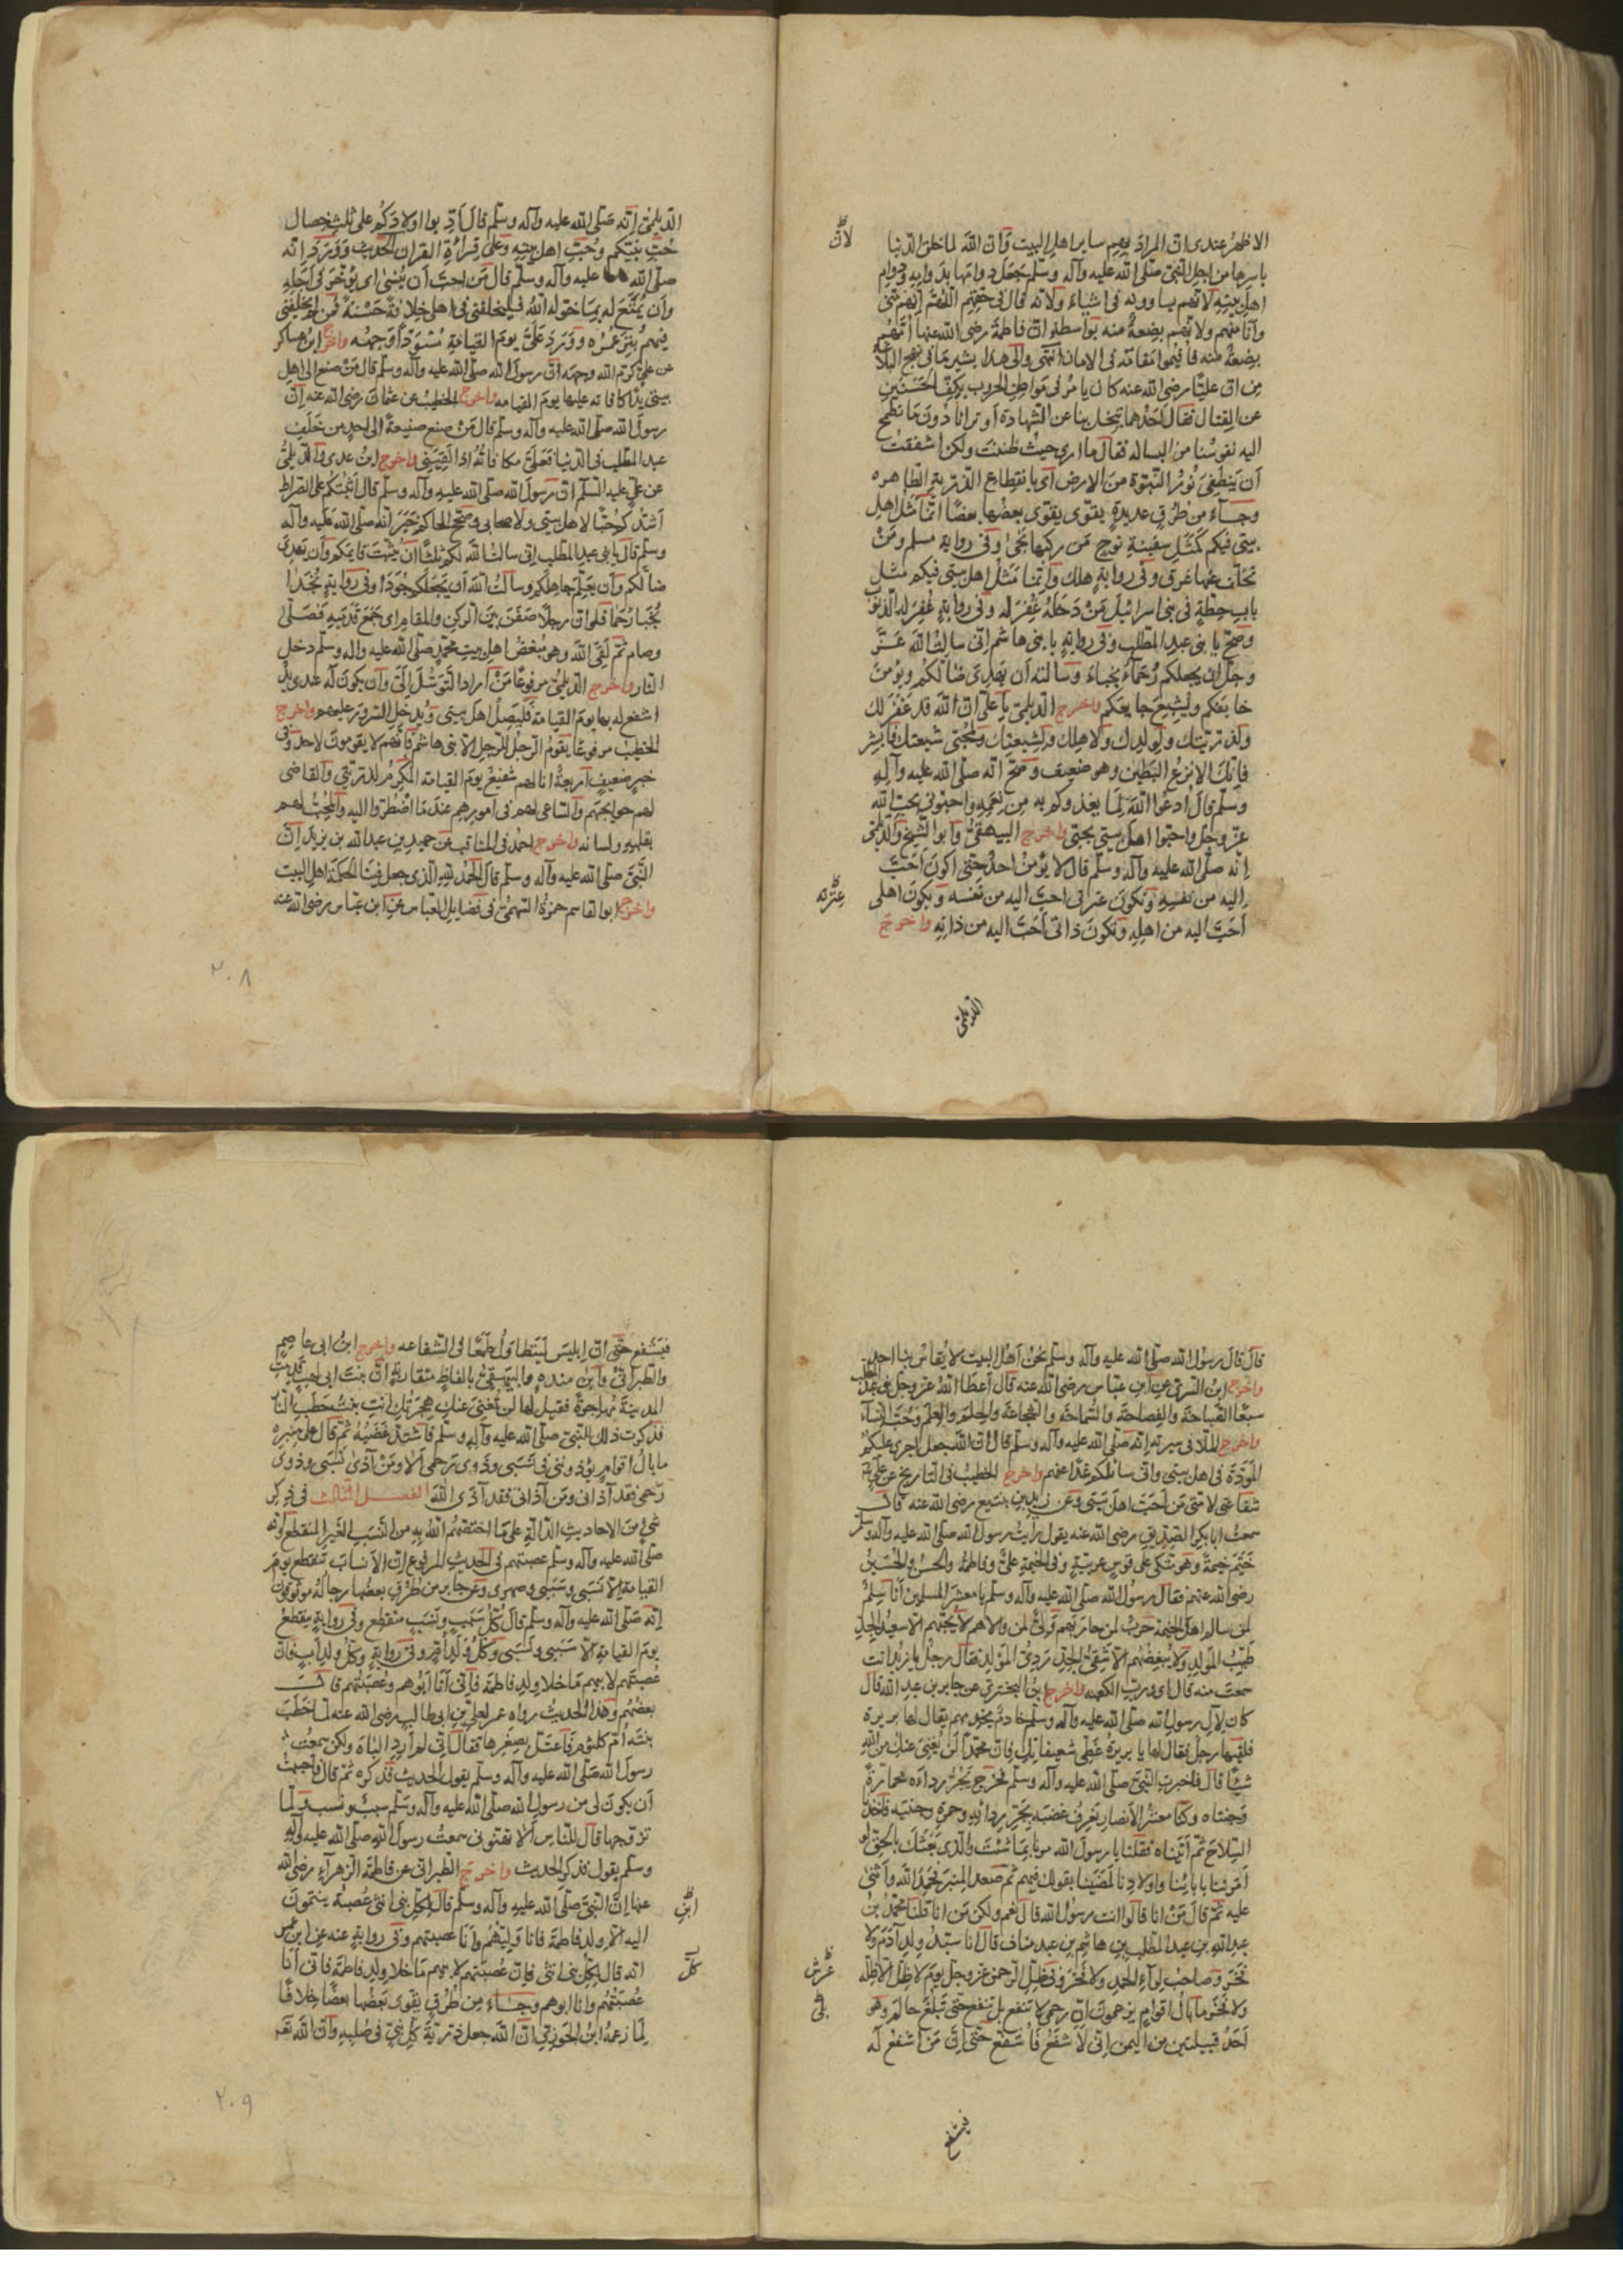 الاظهر عندى ان المراد بهم ساير اهل البيت فان الله لما خلق الدنيا
باسرها من اجل النبى صلى الله عليه وآله وسلم جعل دوامها بدوامه ودوام
اهل بيته لانهم يساوونه فى اشياء ولانه قال فى حقهم اللهم انهم منى
وانا منهم ولانهم بضعة منه بواسطة ان فاطمة رضى الله عنها امهم
بضعة منه فاقيموا مقامه فى الامان انتهى والى هذا يشير ما فى نهج البلاغه
من ان عليا رضى الله عنه كان يامر فى مواطن الحروب بكف الحسنين
عن القتال فقال احدهما تبخل بنا عن الشهادة او ترانا دون ما تطمح
اليه نفوسنا من البساله فقال ما ارى حيث ظننت ولكن اشفقت
ان ينطفئ نور النبوة من الارض اى بانقطاع الذرية الطاهره
وجاء من طرق عديدة يقوى يقوى بعضها بعضا انما مثل اهل
بيتى فيكم كمثل سفينة نوح من ركبها نجى وفى رواية مسلم ومن
تخلف عنها غرق وفى رواية هلك وانما مثل اهل بيتى فيكم مثل
باب حطة فى بنى اسرائيل من دخله غفر له وفى رواية غفر له الذنوب
وصح يا بنى عبد المطلب وفى رواية يا بنى هاشم انى سالت الله عز
وجل ان يجعلكم رحماء نجباء وسالته ان يهدى ضالكم ويؤمن
خايفكم ويشبع جايعكم واخرج الديلمى يا على ان الله قد غفر لك
ولذريتك ولولدك ولاهلك ولشيعتك ولمحبى شيعتك فابشر
فانك الانزع البطين وهو ضعيف وصح انه صلى الله عليه وآله
وسلم قال ادعوا الله لما يغذوكم به من نعمه واحبونى بحب الله
عز وجل واحبوا اهل بيتى بحبى واخرج البيهقى وابو الشيخ والديلمى
انه صلى الله عليه وآله وسلم قال لا يؤمن احد حتى اكون احب
اليه من نفسه وتكون عترتى احب اليه من نفسه ويكون اهلى
احب اليه من اهله وتكون ذاتى احب اليه من ذاته واخرج
الديلمى
لان
عترته
الديلمى انه صلى الله عليه وآله وسلم قال ادبوا اولادكم على ثلث خصال
حب نبيكم وحب اهل بيته وعلى قراءة القران الحديث وورد انه
صلى الله عليه وآله وسلم قال من احب ان ينسى اى يؤخر فى اجله
وان يمتع له بما خوله الله فليخلفنى فى اهلى خلافة حسنة فمن لم يخلفنى
فيهم بتر عمره وورد على يوم القيامة مسودا وجهه واخرج ابن عساكر
عن على كرم الله وجهه ان رسول الله صلى الله عليه وآله وسلم قال من صنع الى اهل
بيتى يدا كافاته عليها يوم القيامه واخرج الخطيب عن عثمان رضى الله عنه ان
رسول الله صلى الله عليه وآله وسلم قال من صنع صنيعة الى احد من خلف
عبد المطلب فى الدنيا فعلى مكافاته اذا لقينى واخرج ابن عدى والديلمى
عن على عليه السلم ان رسول الله صلى الله عليه وآله وسلم قال اثبتكم على الصراط
اشدكم حبا لاهل بيتى ولاصحابى وصح الحاكم خبر انه صلى الله عليه وآله
وسلم قال يا بنى عبد المطلب انى سالت الله لكم ثلثا ان يثبت قايمكم وان يهدى
ضالكم وان يعلم جاهلكم وسالت الله ان يجعلكم جودا وفى رواية نجدا
نجبا رحما فلو ان رجلا صفن بين الركن والمقام اى جمع قدميه فصلى
وصام ثم لقى الله وهو يبغض اهل بيت محمد صلى الله عليه واله وسلم دخل
النار واخرج الديلمى مرفوعا من اراد التوسل الى وان يكون له عندى يد
اشفع له بها يوم القيامة فليصل اهل بيتى ويدخل السرور عليهم واخرج
الخطيب مرفوعا يقوم الرجل للرجل الا بنى هاشم فانهم لا يقومون لاحد وفى
خبر ضعيف اربعة انا لهم شفيع يوم القيامة المكرم لذريتى والقاضى
لهم حوايجهم والساعى لهم فى امورهم عند ما اضطروا اليه والمحب لهم
بقلبه ولسانه واخرج احمد فى المناقب عن حميد بن عبد الله بن يزيد ان
النبى صلى الله عليه وآله وسلم قال الحمد لله الذى جعل فينا الحكمة اهل البيت
واخرج ابو القاسم حمزة السهمى فى فضايل العباس عن ابن عباس رضى الله عنه
٢٠٨
قال قال رسول الله صلى الله عليه وآله وسلم نحن اهل البيت لا يقاس بنا احد
واخرج ابن السرى عن ابن عباس رضى الله عنه قال اعطا الله عز وجل بنى عبد المطلب
سبعا الصباحة والفصاحة والسماحة والشجاعة والحلم والعلم وحب النساء
واخرج الملا فى سيرته انه صلى الله عليه وآله وسلم قال ان الله جعل اجرى عليكم
المودة فى اهل بيتى وانى سائلكم غدا عنهم واخرج الخطيب فى التاريخ عن على
شفاعتى لامتى من احب اهل بيتى وعن زيد بن يثيع رضى الله عنه قال
سمعت ابا بكر الصديق رضى الله عنه يقول رأيت رسول الله صلى الله عليه وآله وسلم
خيم خيمة وهو متكى على قوس عربية وفى الخيمة على وفاطمة والحسن والحسين
رضى الله عنهم فقال رسول الله صلى الله عليه وآله وسلم يا معشر المسلمين انا سلم
لمن سالم اهل الخيمة حرب لمن حاربهم ولى لمن والاهم لا يحبهم الا سعيد الجد
طيب المولد ولا يبغضهم الا شقى الجد ردى المولد فقال رجل يا زيد انت
سمعت منه قال اى ورب الكعبه واخرج ابن البخترى عن جابر بن عبد الله قال
كان لآل رسول الله صلى الله عليه وآله وسلم خادم يخدمهم يقال لها بريرة
فلقيها رجل فقال لها يا بريرة غطى شعيفاتك فان محمدا لن يغنى عنك من الله
شيئا قال فاخبرت النبى صلى الله عليه وآله وسلم فخرج يجر رداءه محمارة
وجنتاه وكنا معشر الانصار نعرف غضبه بجر ردائه وحمرة وجنتيه فاخذنا
السلاح ثم اتيناه فقلنا يا رسول الله مرنا بما شئت والذى بعثك بالحق لو
امرتنا بابائنا واولادنا لمضينا بقولك فيهم ثم صعد المنبر فحمد الله واثنى
عليه ثم قال من انا قالوا انت رسول الله قال نعم ولكن من انا قلنا محمد بن
عبد الله بن عبد المطلب بن هاشم بن عبد مناف قال انا سيد ولد آدم ولا
فخر وصاحب لواء الحمد ولا فخر وفى ظل الرحمن عز وجل يوم لا ظل الا ظله
ولا فخر ما بال اقوام يزعمون ان رحمى لا تنفع بل تنفع حتى تبلغ حا لم وهو
احد قبيلتين من اليمن انى لاشفع فاشفع حتى ان من اشفع له
عرش
بلى
فيشفع
فيشفع حتى ان ابليس ليتطاول طمعا فى الشفاعه واخرج ابن ابى عاصم
والطبرانى وابن منده والبيهقى بالفاظ متقاربة ان بنت ابى لهب قدمت
المدينة مهاجرة فقيل لها لن تغنى عنك هجرتك انت بنت حطب النار
فذكرت ذلك للنبى صلى الله عليه وآله وسلم فاشتد غضبه ثم قال على منبره
ما بال اقوام يؤذوننى فى نسبى وذوى رحمى الا ومن آذى نسبى وذوى
رحمى فقد آذانى ومن آذانى فقد آذى الله الفصل الثالث فى ذكر
شئ من الاحاديث الدالة على ما اختصهم الله به من النسب الغير المنقطع وانه
صلى الله عليه وآله وسلم عصبتهم فى الحديث المرفوع ان الانساب تنقطع يوم
القيامة الا نسبى وسببى وصهرى وعن جابر من طرق بعضها رجاله موثوقون
انه صلى الله عليه وآله وسلم قال كل سبب ونسب منقطع وفى رواية ينقطع
يوم القيامة الا سببى ونسبى وكل ولد ام وفى رواية وكل ولد اب فان
عصبتهم لابيهم ما خلا ولد فاطمة فانى انا ابوهم وعصبتهم قال
بعضهم وهذا الحديث رواه عمر لعلى بن ابى طالب رضى الله عنه لما خطب
بنته ام كلثوم فاعتل بصغرها فقال انى لم ارد الباه ولكن سمعت
رسول الله صلى الله عليه وآله وسلم يقول الحديث فذكره ثم قال فاحببت
ان يكون لى من رسول الله صلى الله عليه وآله وسلم سبب ونسب ولما
تزوجها قال للناس الا تهنونى سمعت رسول الله صلى الله عليه وآله
وسلم يقول فذكر الحديث واخرج الطبرانى عن فاطمة الزهراء رضى الله
عنها ان النبى صلى الله عليه وآله وسلم قال لكل بنى انثى عصبة ينتمون
اليه الا ولد فاطمة فانا وليهم وانا عصبتهم وفى رواية عنه عن ابن عمر
انه قال لكل بنى انثى فان عصبتهم لابيهم ما خلا ولد فاطمة فانى انا
عصبتهم وانا ابوهم وجاء من طرق يقوى بعضها بعضا خلافا
لما زعمه ابن الجوزى ان الله جعل ذرية كل نبى فى صلبه وان الله تعـ
ابن
كل
٢٠٩